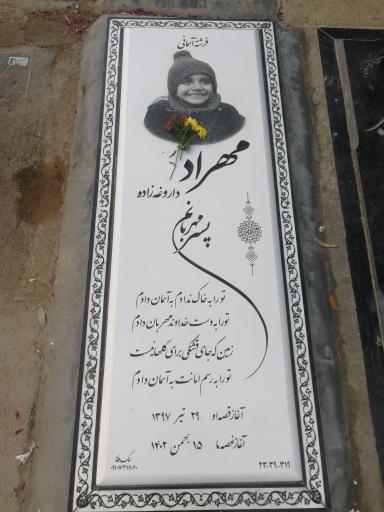 فرشته آسمانی
مهراد
داروغه زاده
پسر مهربانم
تو را به خاک ندادم به آسمان دادم
تو را به دست خداوند مهربان دادم
زمین که جای قشنگی برای گلها نیست
تو را به رسم امانت به آسمان دادم
آغاز قصه او ۲۹ تیر ۱۳۹۷
آغاز غصه ما ۱۵ بهمن ۱۴۰۲
۲۳-۳۹-۳۱۹